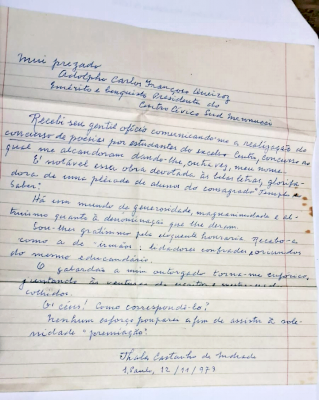 Mui prezado
Adolpho Carlos Françoso Queiroz
Emérito e benquisto Presidente do
Centro Cívico Sud Mennucci
Recebi seu gentil ofício comunicando-me a realização do
concurso de poésias por estudantes do excelso Centro, concurso ao
qual me alcandoram dando-lhe, outrossim, meu nome.
É notável essa obra devotada às belas letras, glorifica-
dora de uma plêiade de aluno do consagrado "Templo do
Saber".
Há um mundo de generosidade, magnanimidade e al-
truismo quanto à denominação que lhe deram.
Sou-lhe gratíssimo pela eloquente honraria. Recebo-a
como a de irmãos: lidadores confrades, oriundos
do mesmo educandário.
O galardão a mim outorgado torna-me eufórico,
colhidos.
Oh céus! Como correspondê-lo?
Nenhum esforço pouparei a fim de assistir à sole-
nidade "premiação".
Thales Castanho de Andrade
S. Paulo, 12/11/973